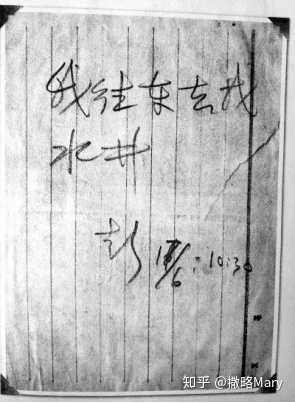 我往东去找
水井
彭 17/6:10:30
知乎 @撒略Mary